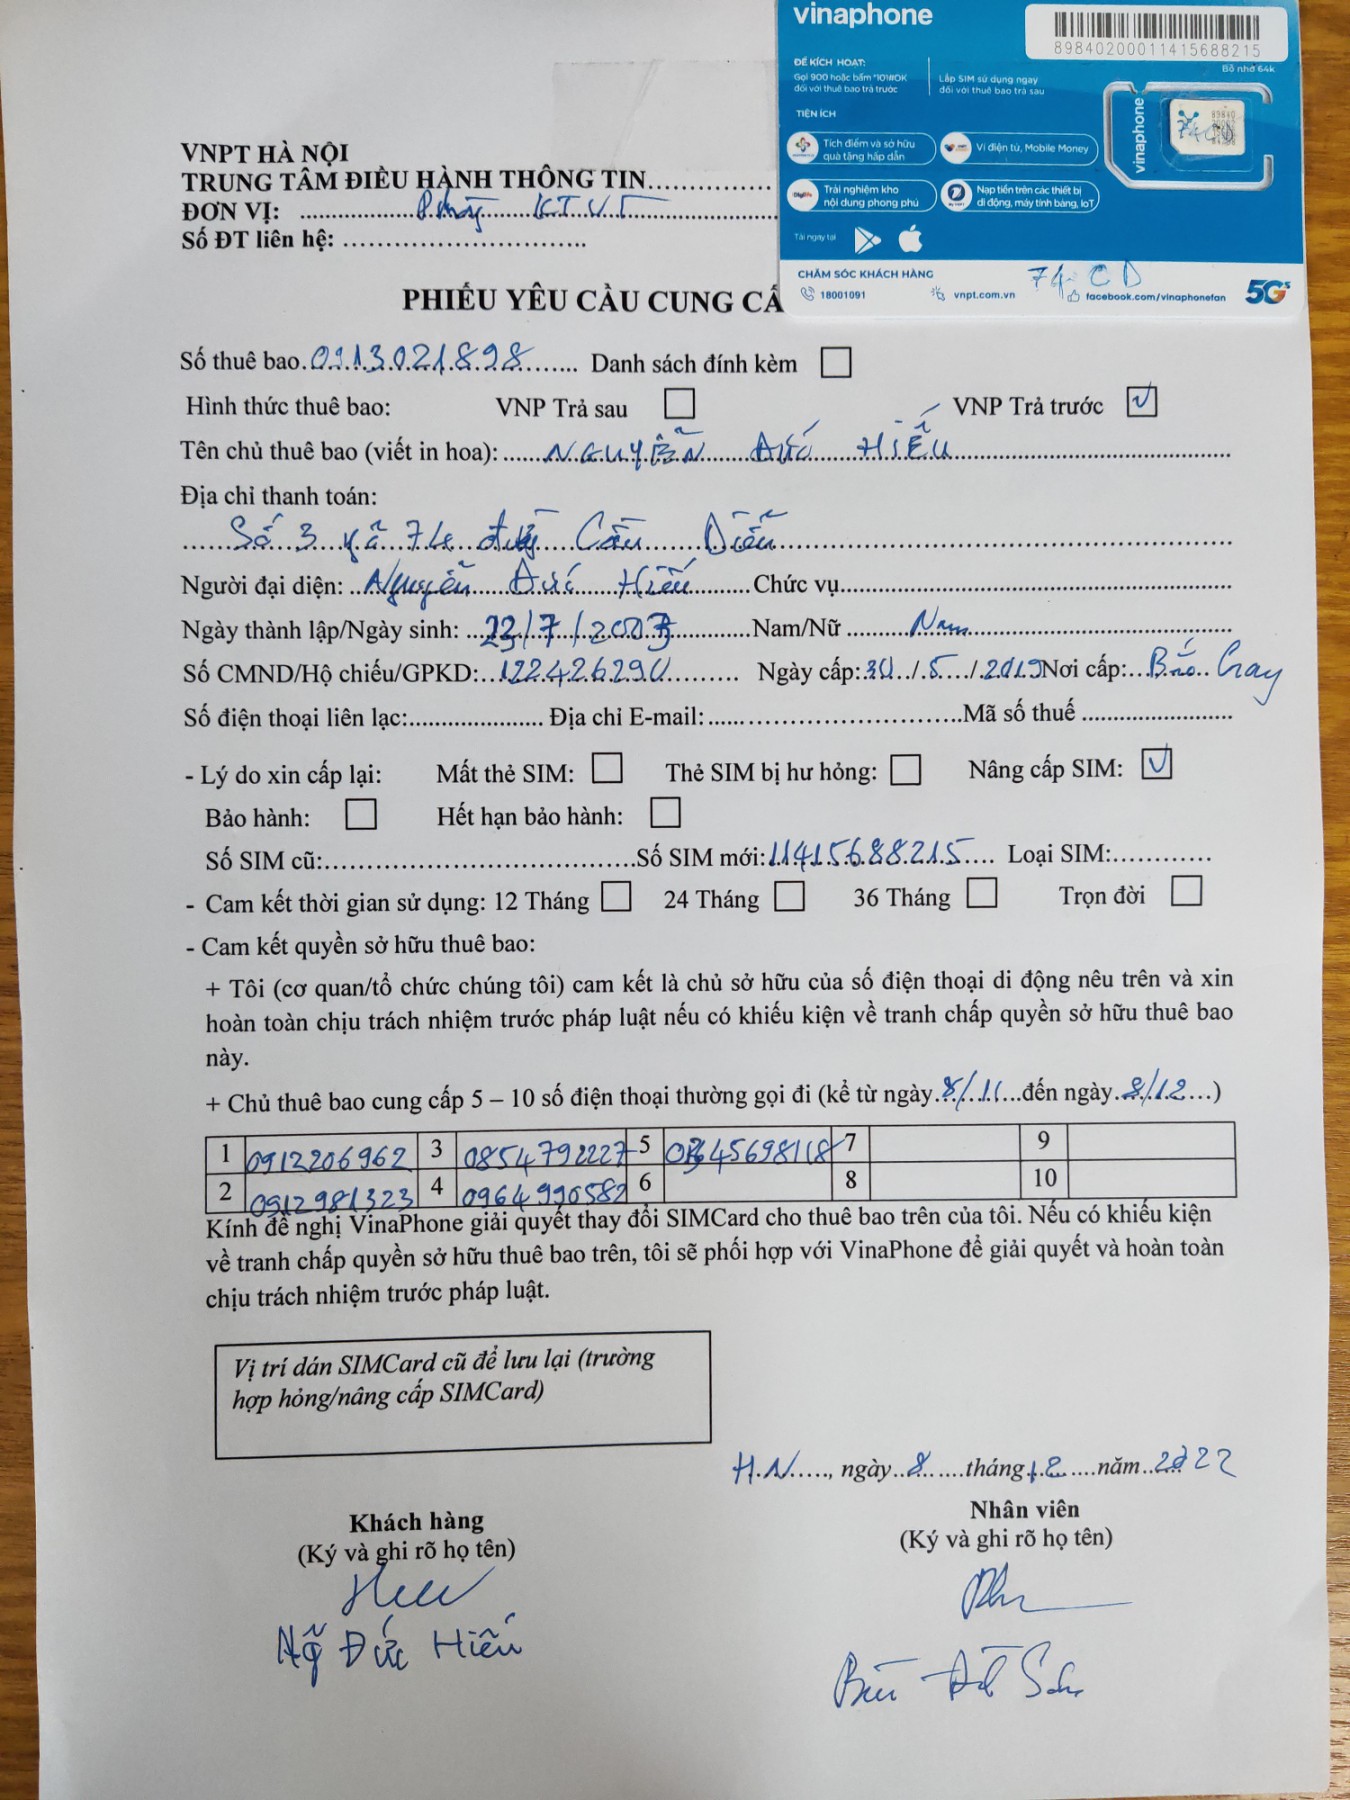 vinaphone
89840200011415688215
Bộ nhớ 64k
ĐỂ KÍCH HOẠT:
Gọi 900 hoặc bấm *101#OK
đối với thuê bao trả trước
Lắp SIM sử dụng ngay
đối với thuê bao trả sau
TIỆN ÍCH
Tích điểm và sở hữu
quà tặng hấp dẫn
Ví điện tử, Mobile Money
Trải nghiệm kho
nội dung phong phú
Nạp tiền trên các thiết bị
di động, máy tính bảng, IoT
Tải ngay tại
vinaphone
89840
74CD
CHĂM SÓC KHÁCH HÀNG
74 CD
18001091
vnpt.com.vn
facebook.com/vinaphonefan
5Gs
VNPT HÀ NỘI
TRUNG TÂM ĐIỀU HÀNH THÔNG TIN
ĐƠN VỊ: Phòng KTVT
Số ĐT liên hệ:
PHIẾU YÊU CẦU CUNG CẤ
Số thuê bao 0913021898 Danh sách đính kèm
Hình thức thuê bao: VNP Trả sau VNP Trả trước
Tên chủ thuê bao (viết in hoa): NGUYỄN ĐỨC HIẾU
Địa chỉ thanh toán:
Số 3 Cầu Diễn
Người đại diện: Nguyễn Đức Hiếu Chức vụ
Ngày thành lập/Ngày sinh: 23/7/2003 Nam/Nữ Nam
Số CMND/Hộ chiếu/GPKD: 122426290 Ngày cấp: 30/5/2019 Nơi cấp: Bắc Giang
Số điện thoại liên lạc: Địa chỉ E-mail: Mã số thuế
- Lý do xin cấp lại: Mất thẻ SIM: Thẻ SIM bị hư hỏng: Nâng cấp SIM:
Bảo hành: Hết hạn bảo hành:
Số SIM cũ: Số SIM mới: 11415688215 Loại SIM:
- Cam kết thời gian sử dụng: 12 Tháng 24 Tháng 36 Tháng Trọn đời
- Cam kết quyền sở hữu thuê bao:
+ Tôi (cơ quan/tổ chức chúng tôi) cam kết là chủ sở hữu của số điện thoại di động nêu trên và xin
hoàn toàn chịu trách nhiệm trước pháp luật nếu có khiếu kiện về tranh chấp quyền sở hữu thuê bao
này.
+ Chủ thuê bao cung cấp 5 – 10 số điện thoại thường gọi đi (kể từ ngày 8/11 đến ngày 8/12)
1 0912206962 3 0854792227 5 0345698118 7 9
2 0912981323 4 0964990582 6 8 10
Kính đề nghị VinaPhone giải quyết thay đổi SIMCard cho thuê bao trên của tôi. Nếu có khiếu kiện
về tranh chấp quyền sở hữu thuê bao trên, tôi sẽ phối hợp với VinaPhone để giải quyết và hoàn toàn
chịu trách nhiệm trước pháp luật.
Vị trí dán SIMCard cũ để lưu lại (trường
hợp hỏng/nâng cấp SIMCard)
H.N, ngày 8 tháng 12 năm 2022
Khách hàng
(Ký và ghi rõ họ tên)
Nhân viên
(Ký và ghi rõ họ tên)
Ng~ Đức Hiếu
Bùi